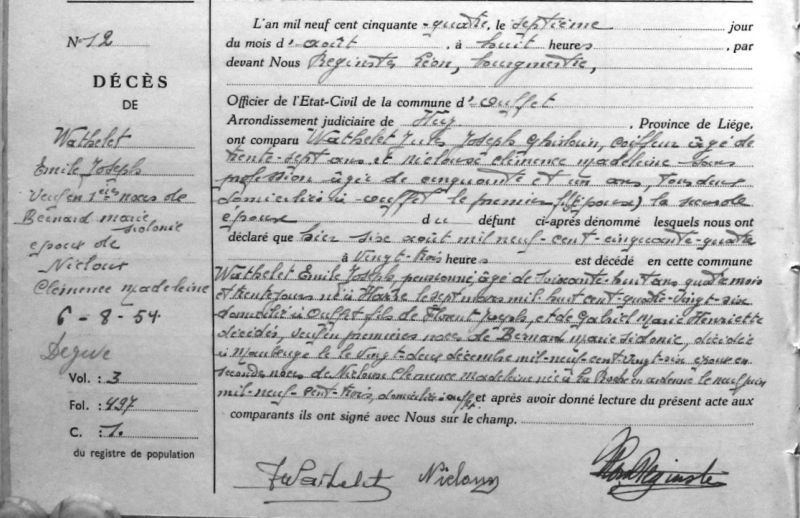 N° 12
DÉCÈS
DE
Wathelet
Emile Joseph
Veuf en 1ères noces de
Bernard Marie
Sidonie
epoux de
Nicloux
Clémence Madeleine
6 - 8 - 54
Vol. : 3
Fol. : 497
C. : 1.
du registre de population
L'an mil neuf cent cinquante -quatre, le septième jour
du mois d' août , à huit heures , par
devant Nous Reginster Léon, bourgmestre,
Officier de l'Etat-Civil de la commune d' Ouffet
Arrondissement judiciaire de Huy , Province de Liége,
ont comparu Wathelet Joseph Ghislain, coiffeur âgé de
trente-sept ans et Nicloux Clémence Madeleine sans
profession âgée de cinquante et un ans, tous deux
domiciliés à Ouffet le premier la seconde
epouse du défunt ci-après dénommé lesquels nous ont
déclaré que hier six août mil neuf-cent-cinquante-quatre
à vingt-trois heures est décédé en cette commune
Wathelet Emile Joseph, pensionné, âgé de soixante-huit ans quatre mois
et trente jours né à le sept mars mil-huit cent-quatre-vingt-six
domicilié à Ouffet fils de Florent Joseph, et de Gabriel Marie Henriette
décédés, veuf en premières noces de Bernard Marie Sidonie, décédée
à Maubeuge le vingt-deux décembre mil-neuf-cent-vingt-six epoux en
secondes noces de Nicloux Clémence Madeleine née à La Roche en ardenne le neuf juin
mil-neuf-cent-trois, domiciliée à Ouffet et après avoir donné lecture du présent acte aux
comparants ils ont signé avec Nous sur le champ.
JWathelet Nicloux Reginster